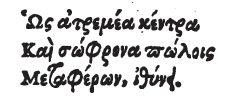 Ὡς ἀτρεμέα κέντρα
Καὶ σώφρονα πώλοις
Μεταφέρων, ἰθύνῃ.